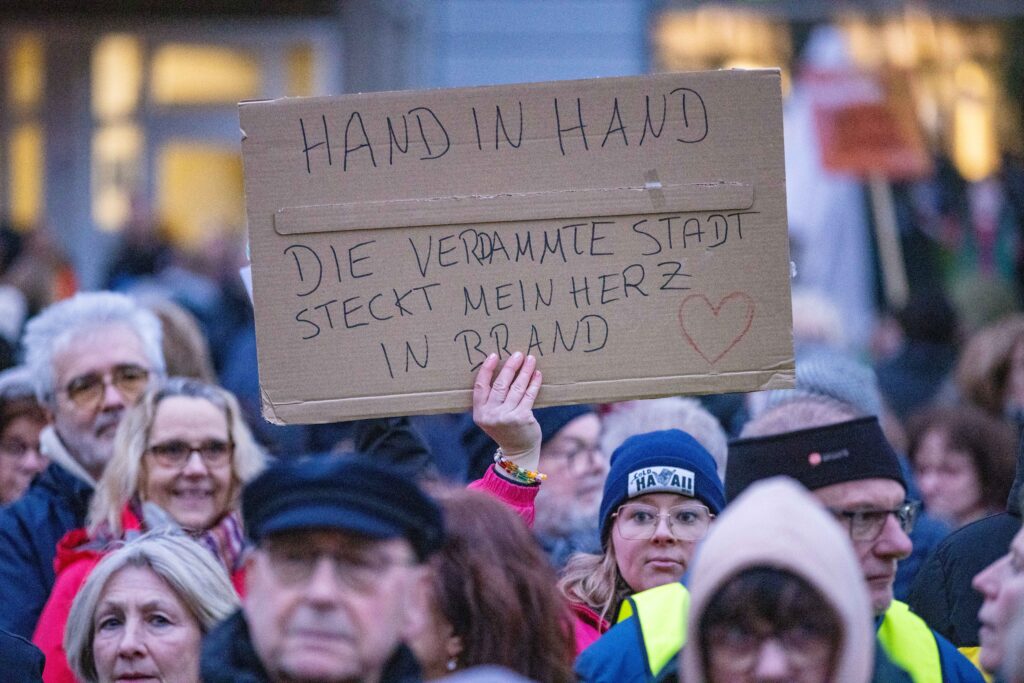 HAND IN HAND
DIE VERDAMMTE STADT
STECKT MEIN HERZ
IN BRAND
COLD
HAWAII